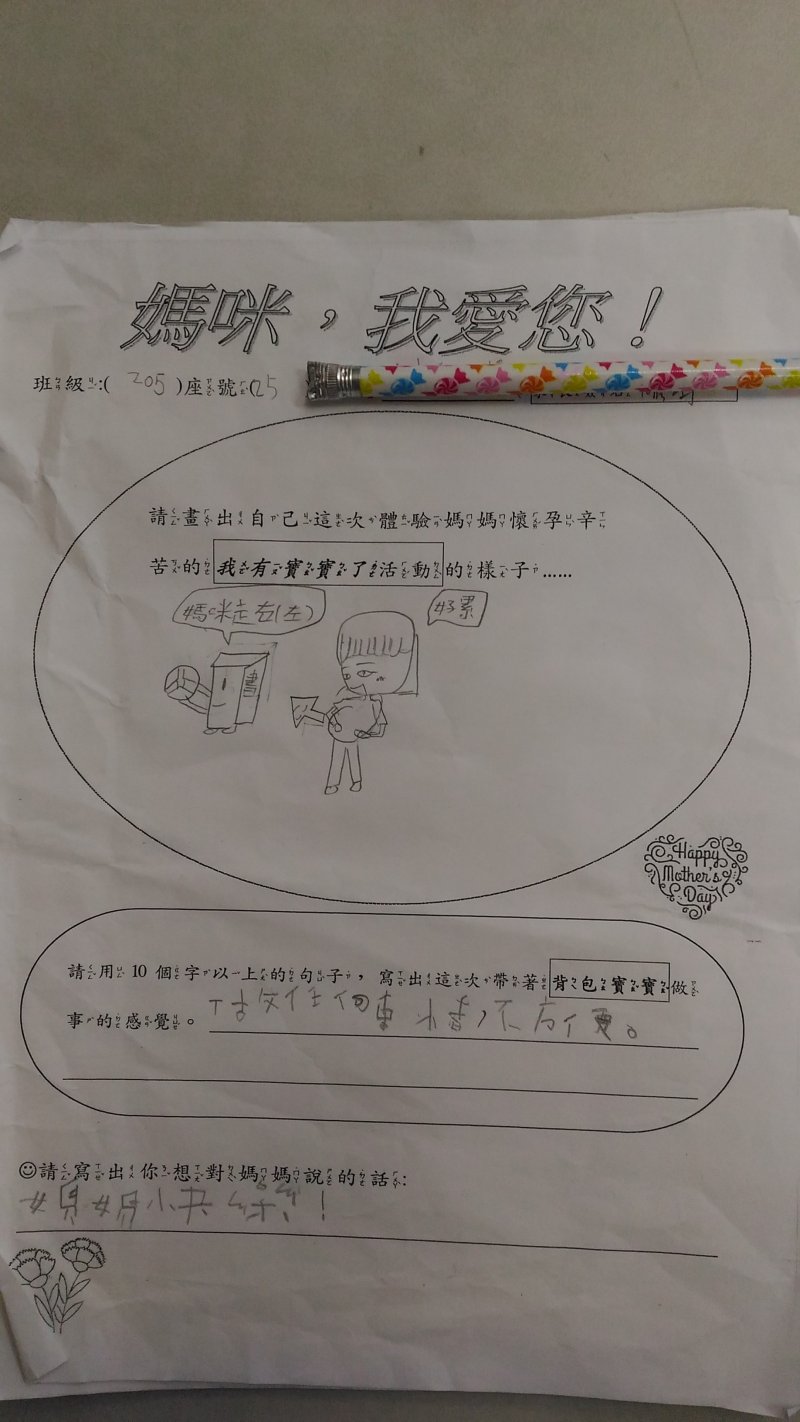 媽咪，我愛您！
班級:( 205 )座號:(25
請畫出自己這次體驗媽媽懷孕辛
苦的我有寶寶了活動的樣子……
媽咪走右(左)
好累
書
Happy
Mother's
Day
請用 10 個字以上的句子，寫出這次帶著背包寶寶做
事的感覺。做任何事情不方便。
☺請寫出你想對媽媽說的話:
媽媽小